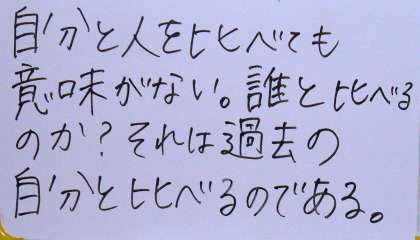 自分と人を比べても
意味がない。誰と比べる
のか？それは過去の
自分と比べるのである。